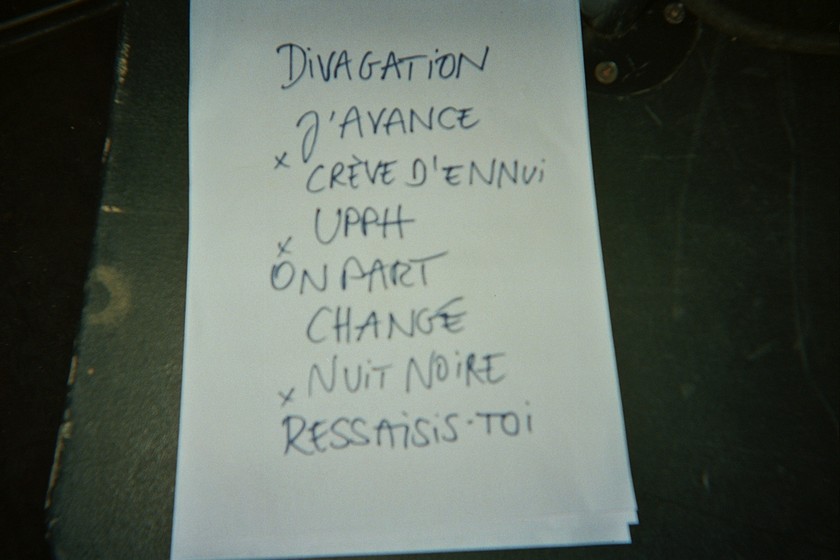 DIVAGATION
J'AVANCE
x
CRÈVE D'ENNUI
UPPH
x
ON PART
CHANGE
NUIT NOIRE
x
RESSAISIS-TOI